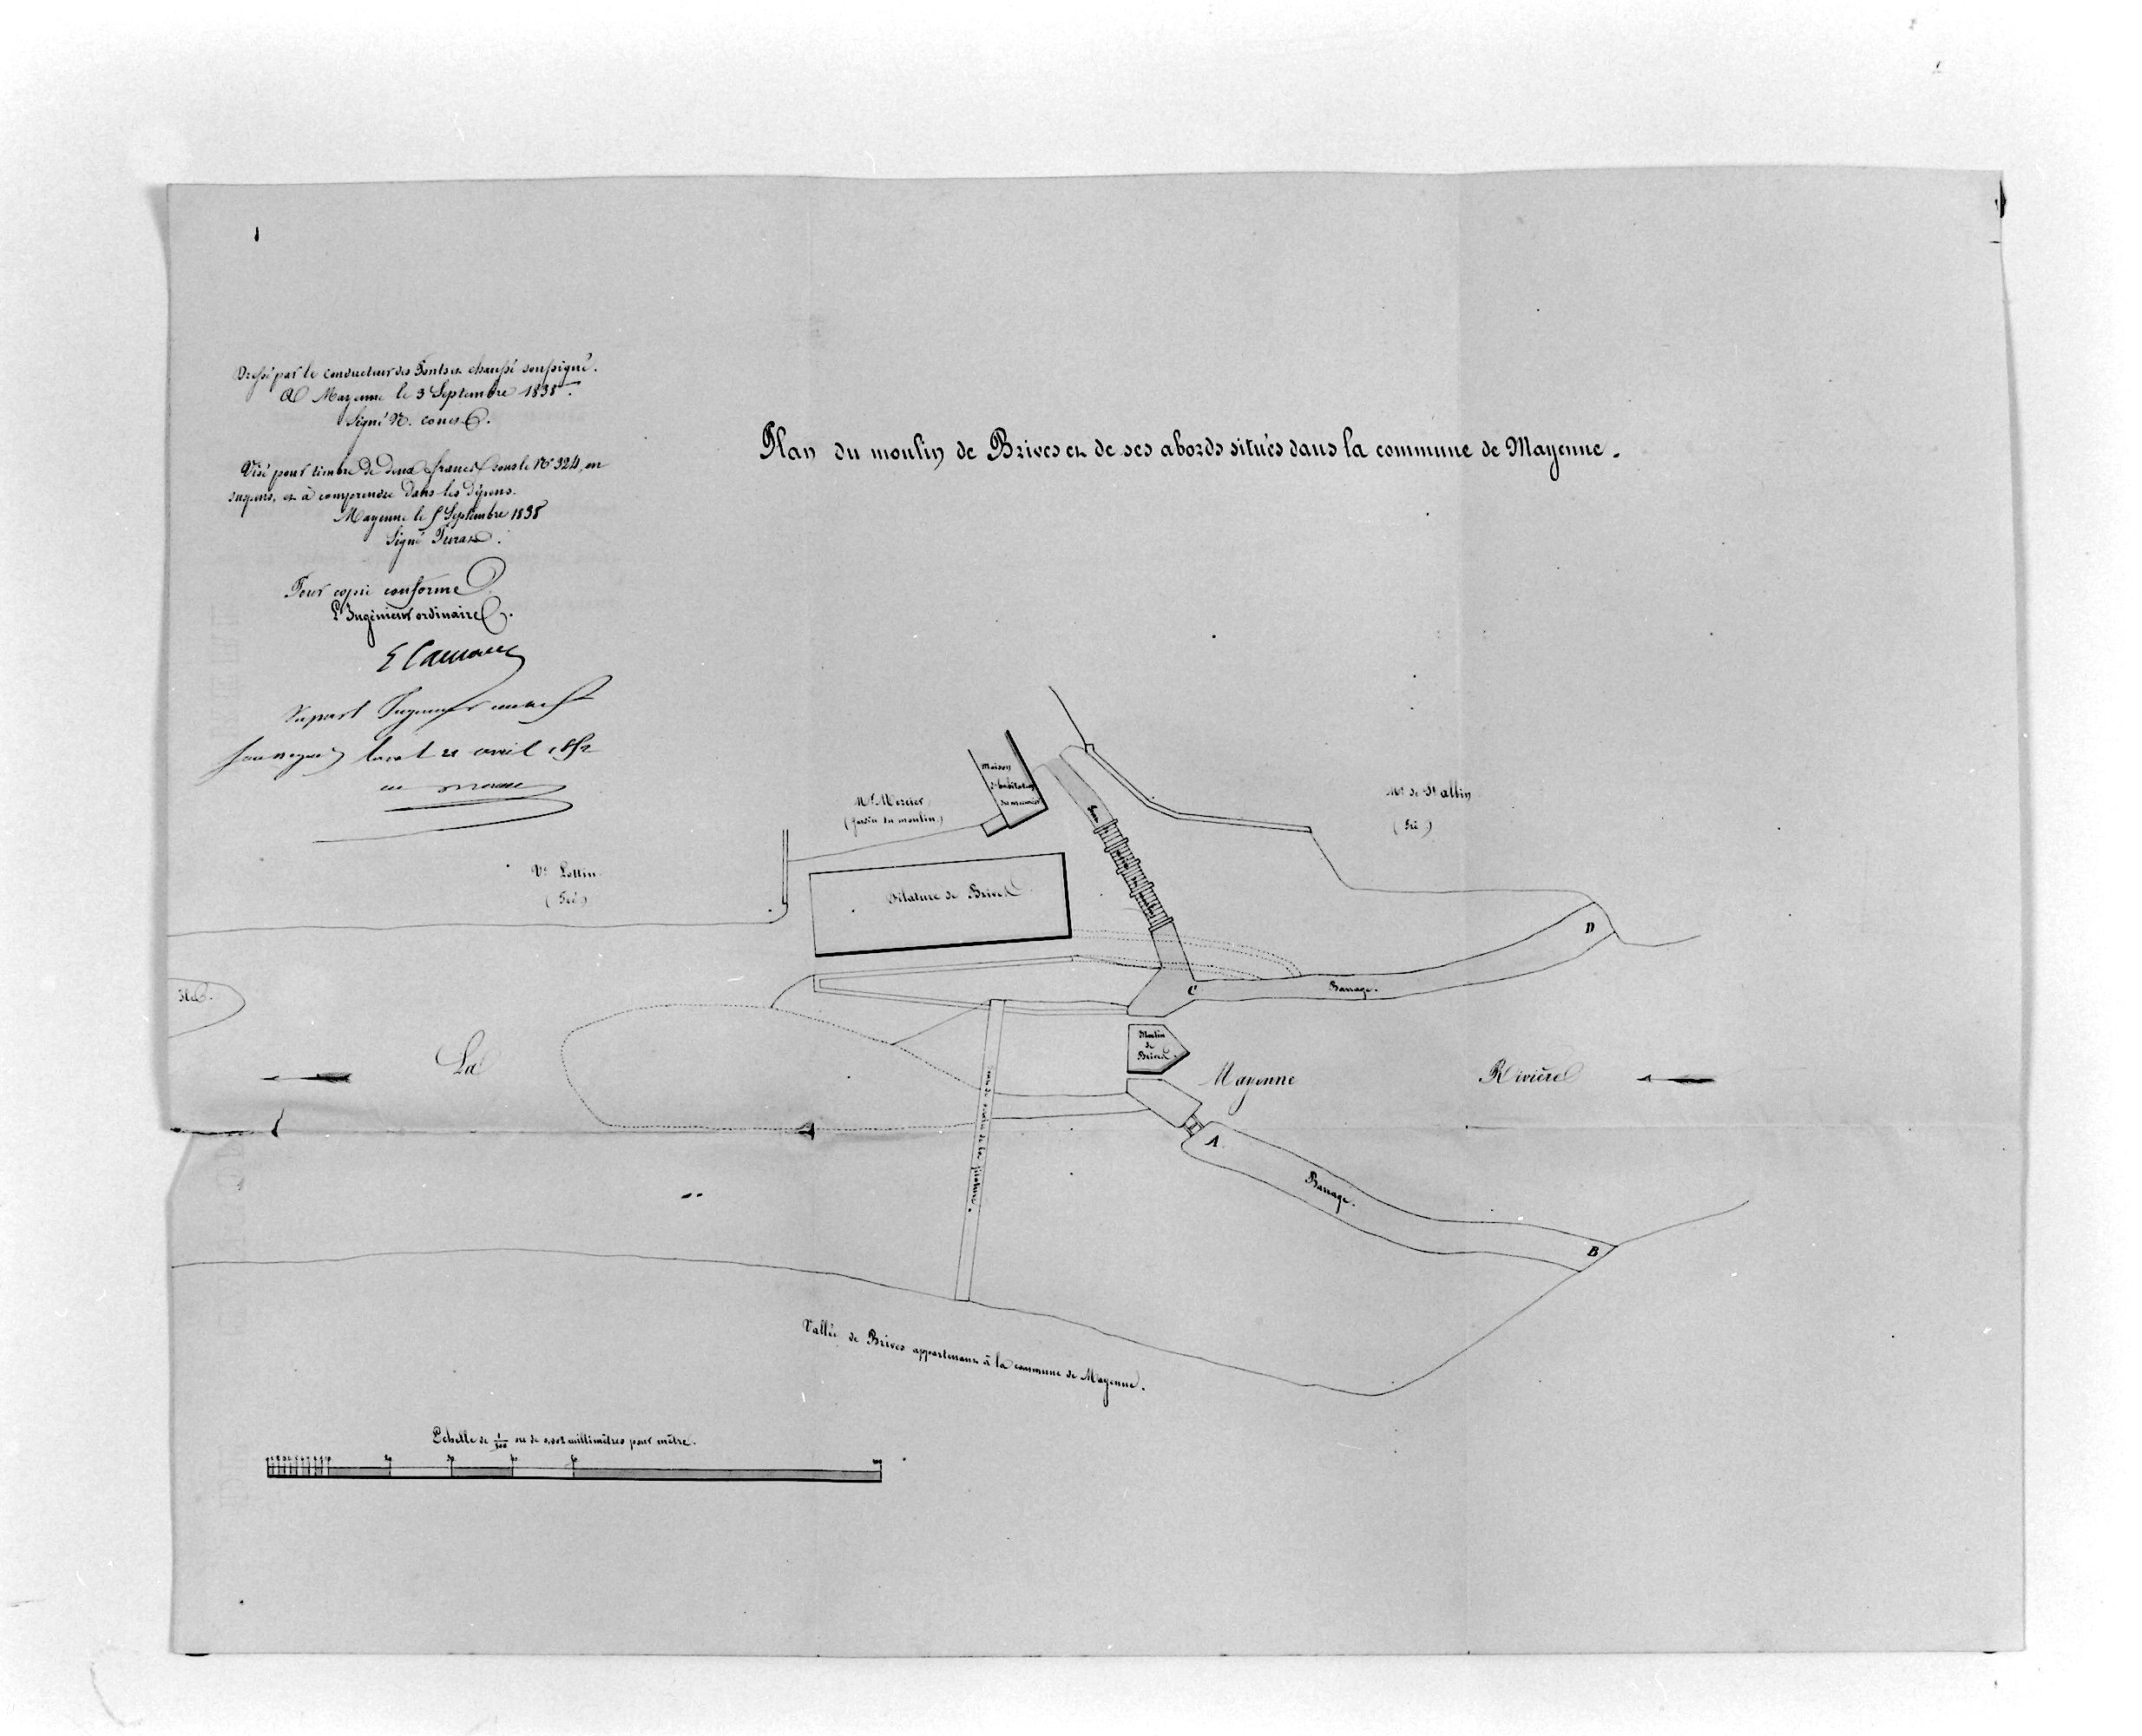 Dressé par le conducteur des Ponts et chaussé soussigné.
A Mayenne le 3 Septembre 1838.
Signé N.
Visé pour timbre de deux francs sous le N° 324, en
suspens, et à comprendre dans les dépens.
Mayenne le 5 Septembre 1838
Signé
Pour copie conforme
L'Ingénieur ordinaire
Ingénieur en chef
soussigné Laval 21 avril 1852
Plan du moulin de Brives et de ses abords situés dans la commune de Mayenne.
Maison
d'habitation
du meunier
Mr Mercier
(Jardin du moulin)
Mr de St albin
(Pré)
Ve Lottin
(Pré)
Filature de Brives
D
C
Barrage.
Ile
Moulin
de
Brives
La
Mayenne
Rivière
A
Barrage.
B
de la filature.
Vallée de Brives appartenant à la commune de Mayenne.
Echelle de 1/500 ou de 0,002 millimètres pour mètre.